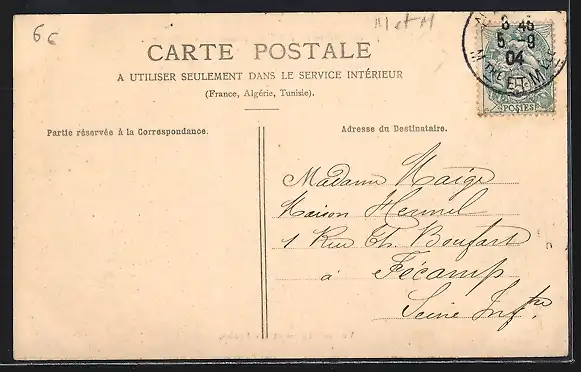 6 €
M et M
CARTE POSTALE
A UTILISER SEULEMENT DANS LE SERVICE INTÉRIEUR
(France, Algérie, Tunisie).
5 - 9
04
ET M
POSTES
Partie réservée à la Correspondance.
Adresse du Destinataire.
Madame Haige
Maison Hermel
1 Rue Th. Boufart
à Fécamp
Seine Infre